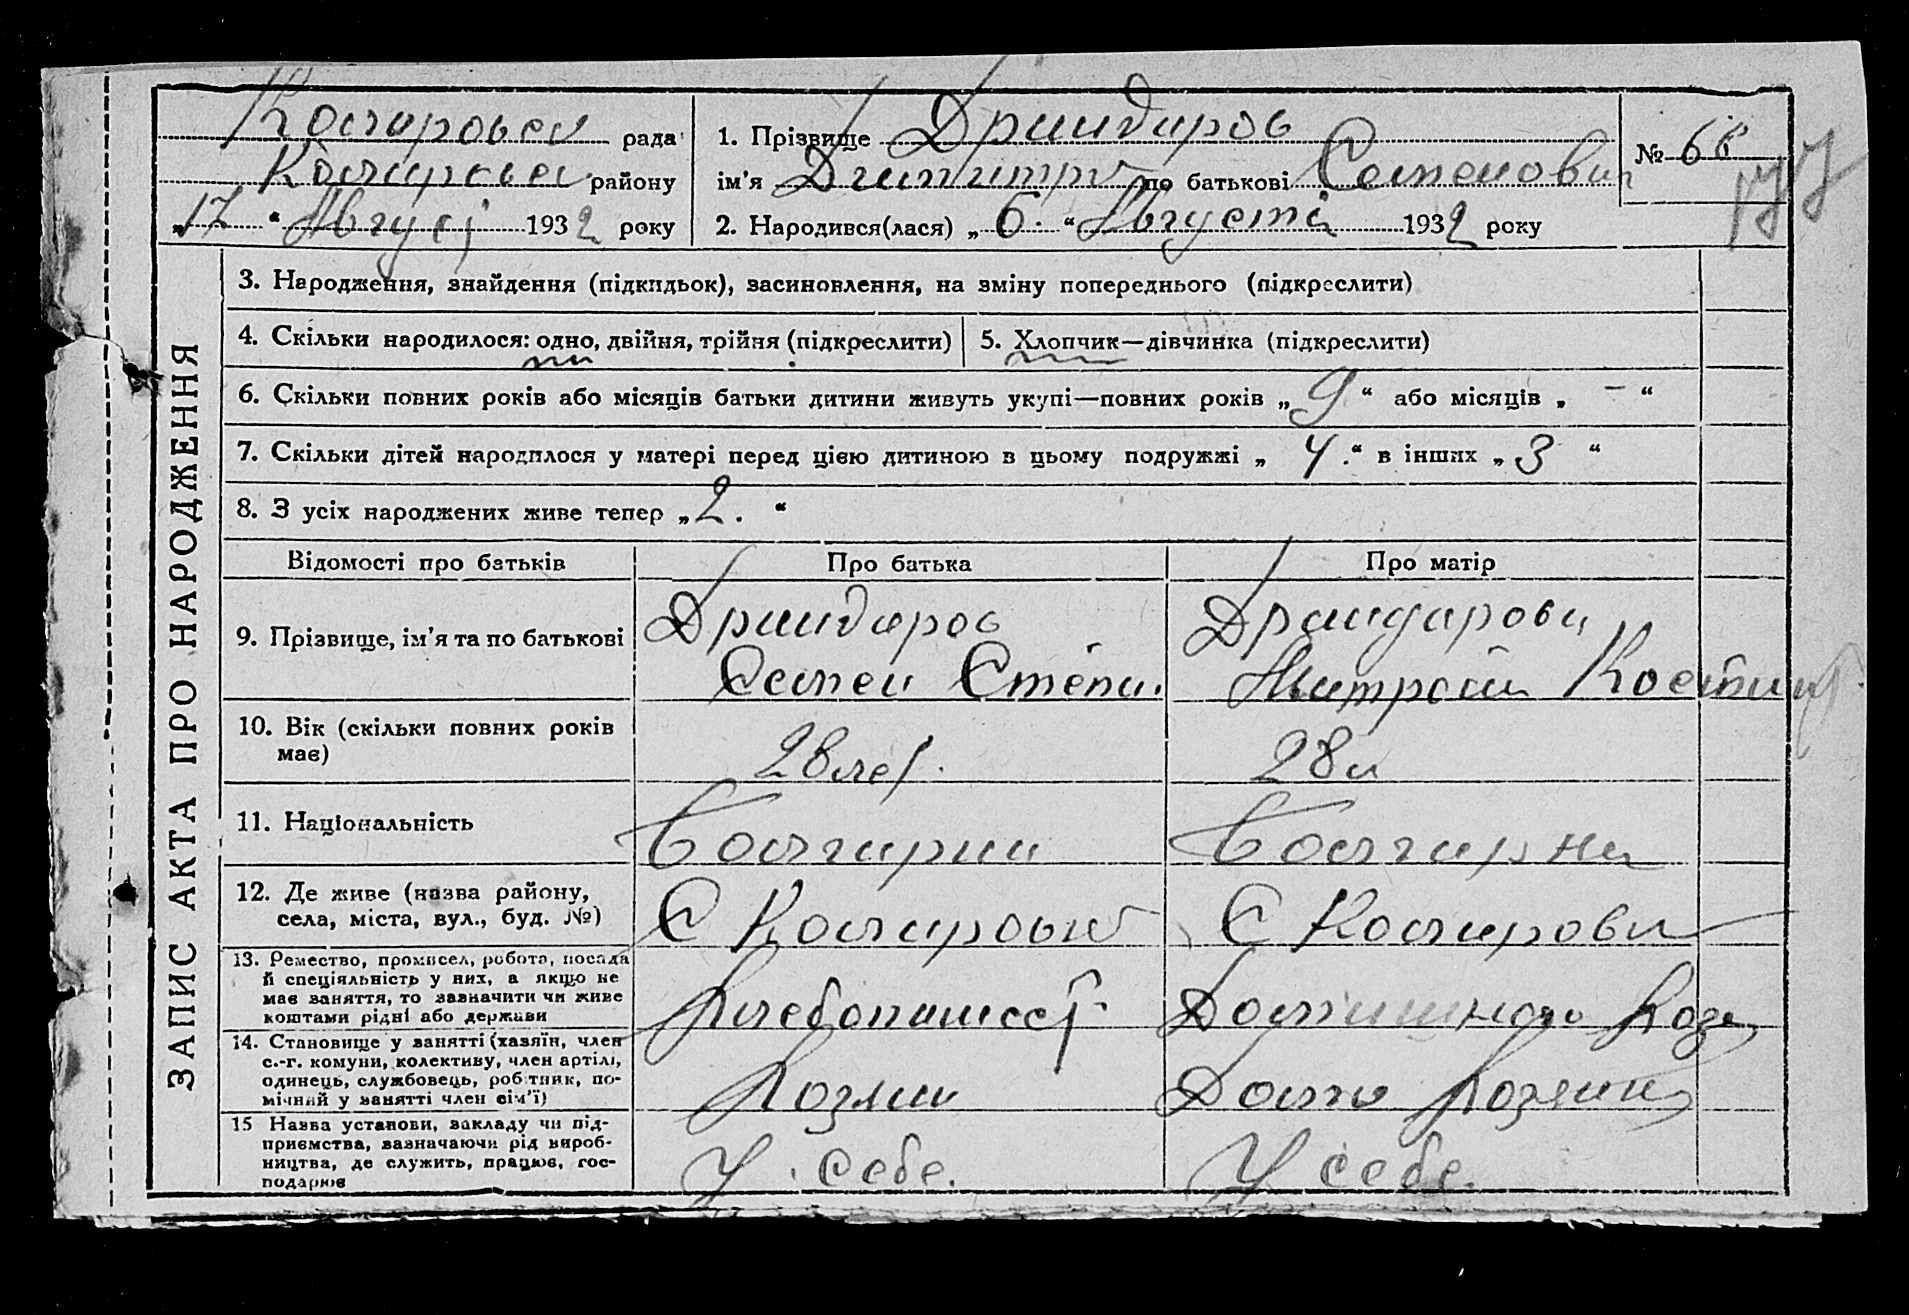 рада
району
„17“ Август 1932 року
1. Прізвище Дриндаров
ім’я Дмитрий по батькові Семенович
2. Народився(лася) „6.“ Августа 1932 року
№ 68
ЗАПИС АКТА ПРО НАРОДЖЕННЯ
3. Народження, знайдення (підкидьок), засиновлення, на зміну попереднього (підкреслити)
4. Скільки народилося: одно, двійня, трійня (підкреслити)
5. Хлопчик—дівчинка (підкреслити)
6. Скільки повних років або місяців батьки дитини живуть укупі—повних років „9“ або місяців „–“
7. Скільки дітей народилося у матері перед цією дитиною в цьому подружжі „4.“ в інших „3“
8. З усіх народжених живе тепер „2.“
Відомості про батьків
Про батька
Про матір
9. Прізвище, ім’я та по батькові
Дриндаров
Семен Степа.
Дриндарова
10. Вік (скільки повних років
має)
28 лет.
28 л
11. Національність
Болгарин
Болгарка
12. Де живе (назва району,
села, міста, вул., буд. №)
13. Ремество, промисел, робота, посада
й спеціяльність у них, а якщо не
має заняття, то зазначити чи живе
коштами рідні або держави
Хлебопашест
Домашного Хозя
14. Становище у занятті (хазяїн, член
с.-г. комуни, колективу, член артілі,
одинець, службовець, робітник, по-
мічний у занятті член сім’ї)
Хозяин
Хозяин
15 Назва установи, закладу чи під-
приємства, зазначаючи рід вироб-
ництва, де служить, працює, гос-
подарює
У себе.
У себе.